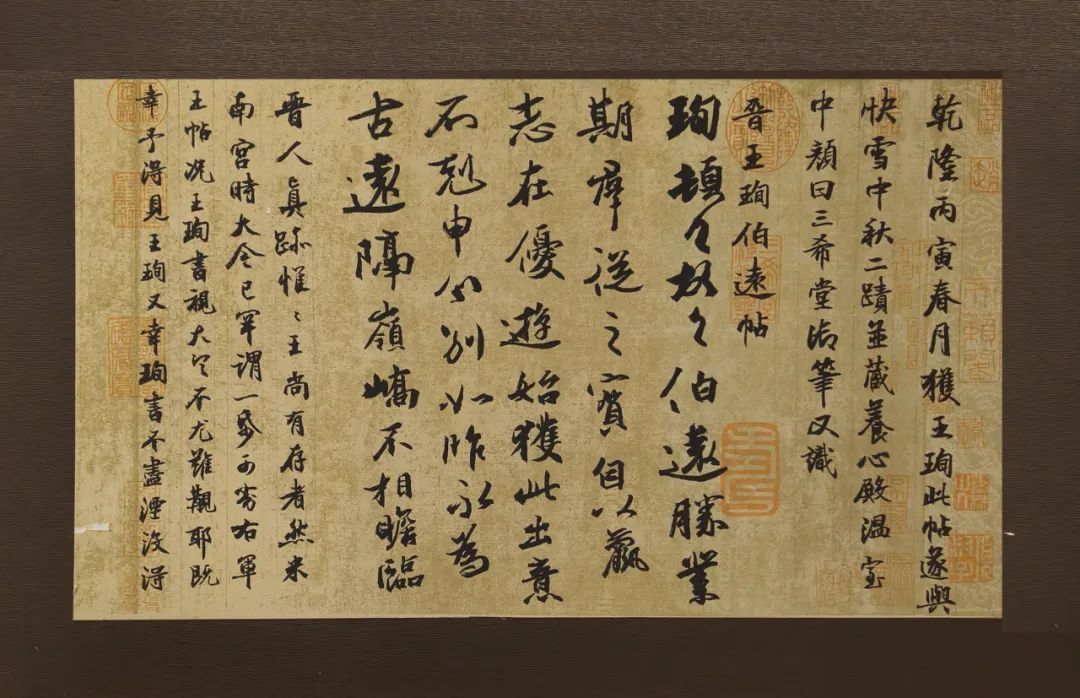 乾隆丙寅春月獲王珣此帖遂與
快雪中秋二蹟並藏養心殿温室
中顔曰三希堂御筆又識
晉王珣伯遠帖
珣頓首頓首伯遠勝業
期羣從之寶自以羸
志在優遊始獲此出意
不剋申分别如昨永為
古遠隔嶺嶠不相瞻臨
晉人真跡惟二王尚有存者然米
南宮時大令已罕謂一帋可當右軍
王帖况王珣書視大令不尤難覯耶既
幸予得見王珣又幸珣書不盡湮没得